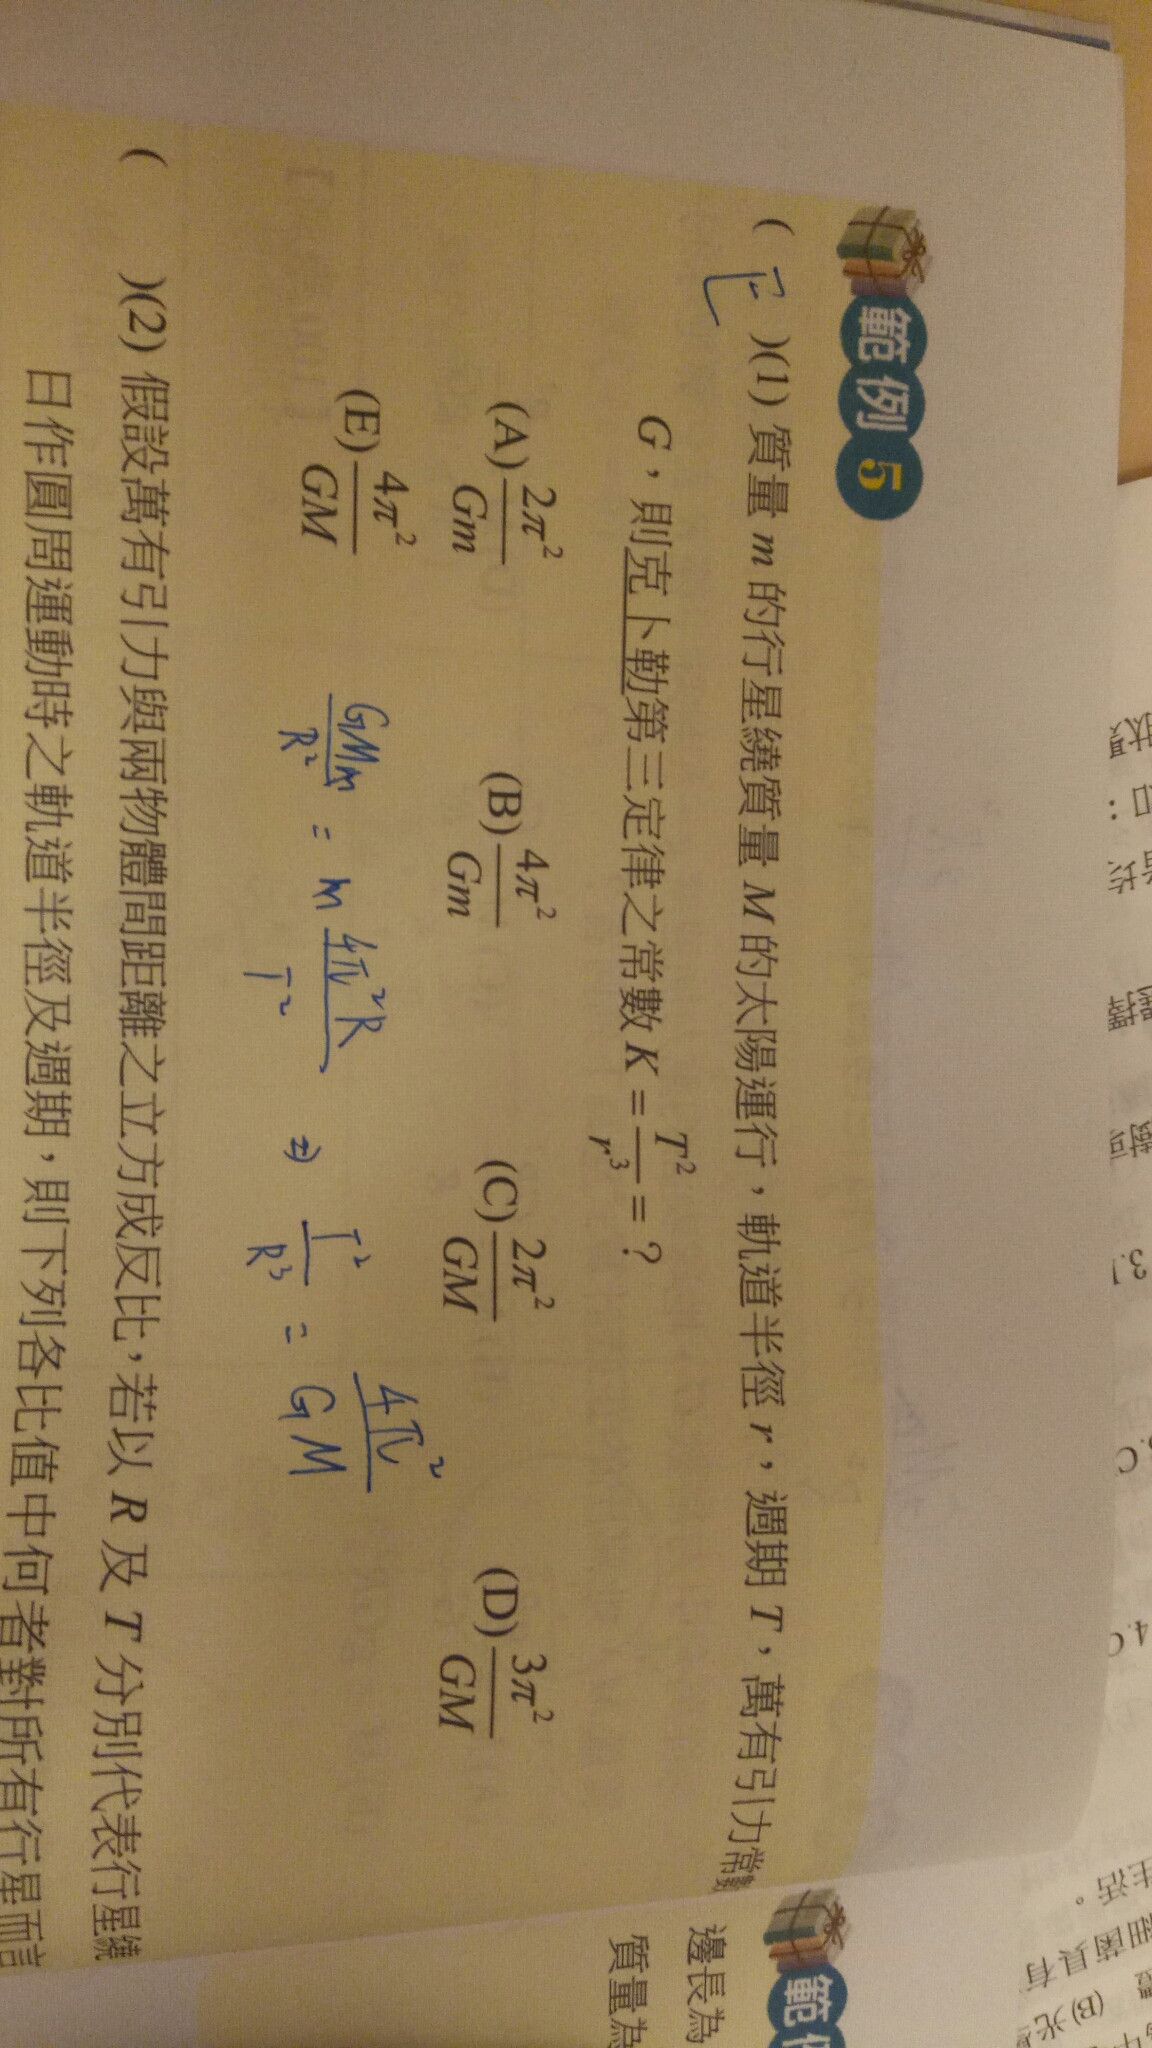 範例 5
( E )(1) 質量 m 的行星繞質量 M 的太陽運行，軌道半徑 r，週期 T，萬有引力常數
G，則克卜勒第三定律之常數 K = T²/r³ = ？
(A) 2π²/Gm (B) 4π²/Gm (C) 2π²/GM (D) 3π²/GM
(E) 4π²/GM
GMm/R² = m 4π²R/T² ⇒ T²/R³ = 4π²/GM
( )(2) 假設萬有引力與兩物體間距離之立方成反比，若以 R 及 T 分別代表行星繞
日作圓周運動時之軌道半徑及週期，則下列各比值中何者對所有行星而言
範例
邊長為
質量為
選擇
3.
4.C
生活。
細菌具有
(B)光